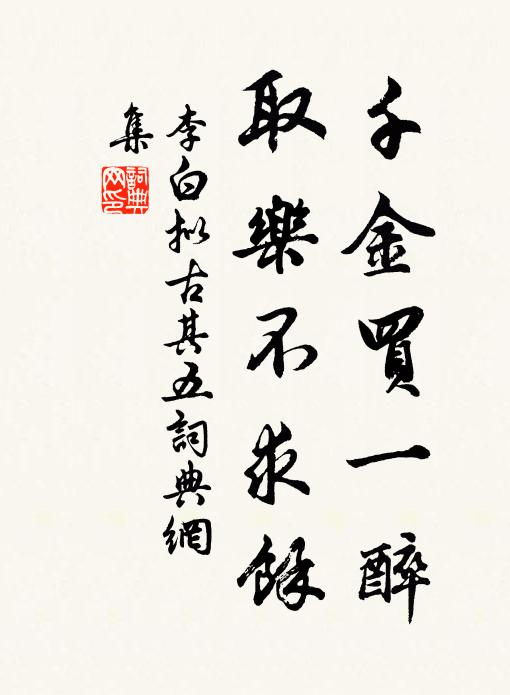 千金買一醉
取樂不求餘
李白拟古其五詞典網
集
詞典
网印